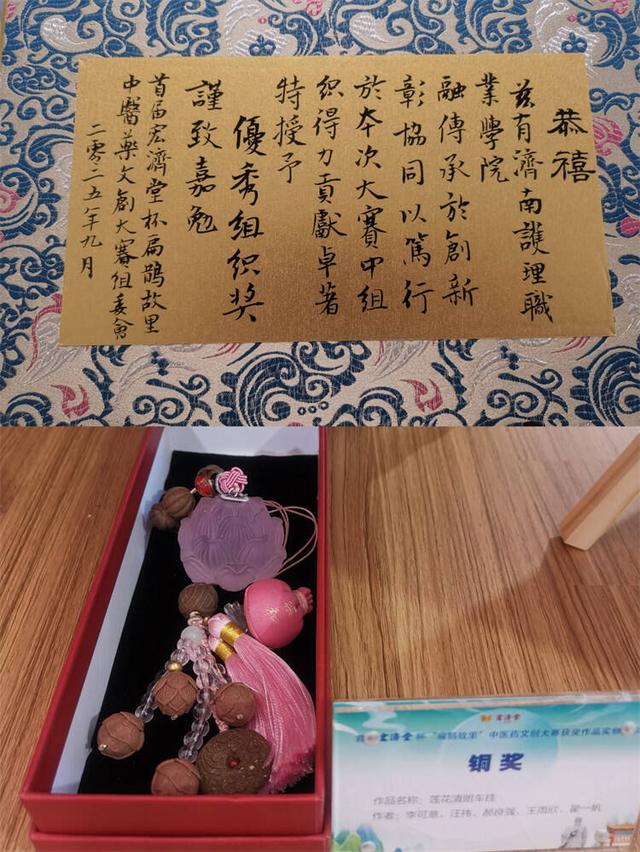 恭禧
兹有濟南護理職
業學院
融傳承於創新
彰協同以篤行
於本次大賽中組
織得力貢獻卓著
特授予
優秀組織奖
謹致嘉勉
首届宏濟堂杯扁鹊故里
中醫藥文創大賽組委會
二零二五年九月
宏濟堂
宏濟堂杯“扁鹊故里”中医药文创大赛获奖作品实物
铜奖
作品名称：莲花清明车挂
作者：李可意、汪祎、郝良强、王雨欣、翟一帆